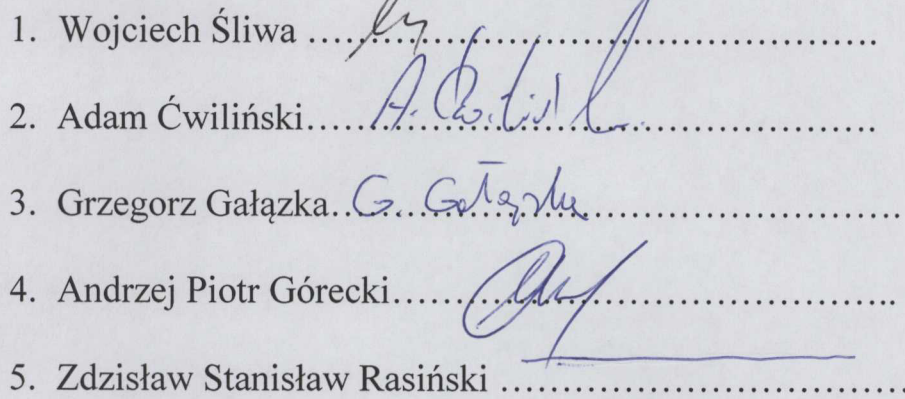 1. Wojciech Śliwa ……………………………………….
2. Adam Ćwiliński……A. Ćwiliński……………….
3. Grzegorz Gałązka..G. Gałązka……………………..
4. Andrzej Piotr Górecki…………………………………..
5. Zdzisław Stanisław Rasiński ……………………………